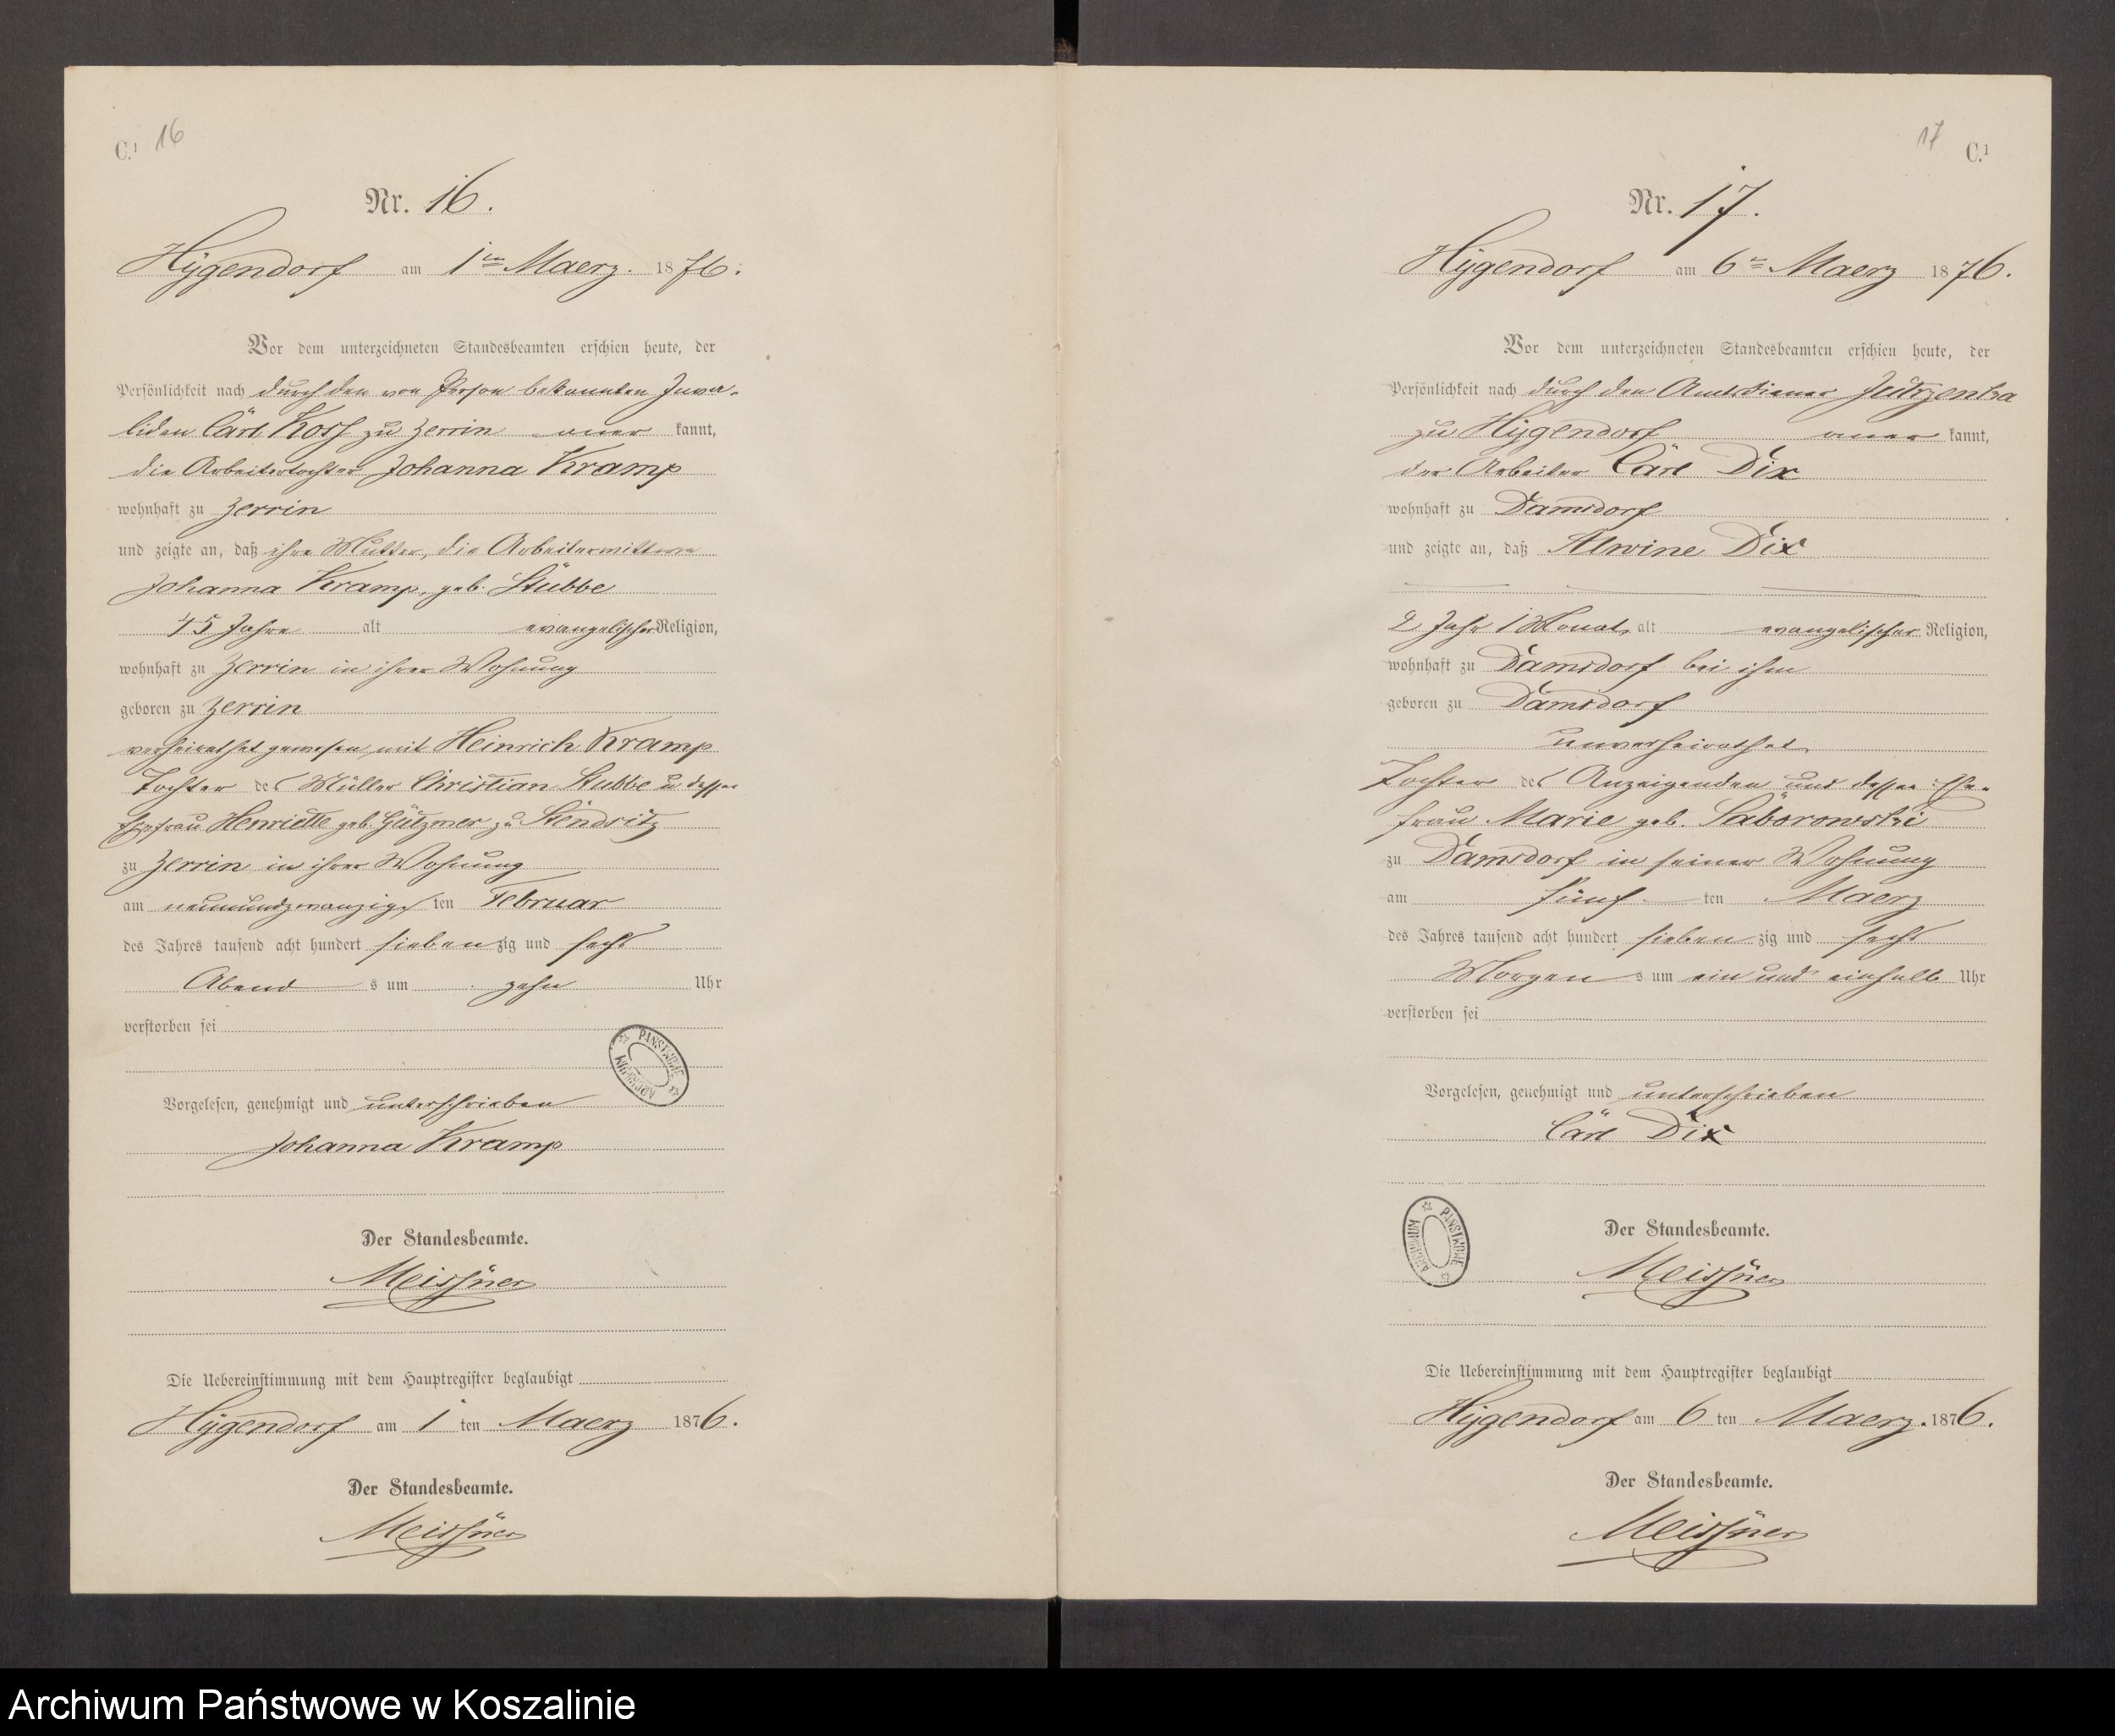 C.1 16
Nr. 16.
Hygendorf am 1ten Maerz. 1876.
Vor dem unterzeichneten Standesbeamten erschien heute, der
Persönlichkeit nach durch den von Person bekannten Inva-
liden Carl Kosch zu Zerrin aner kannt,
die Arbeitertochter Johanna Kramp
wohnhaft zu Zerrin
und zeigte an, daß ihre Mutter, die Arbeiterwittwe
Johanna Kramp, geb. Stubbe
45 Jahre alt evangelischer Religion,
wohnhaft zu Zerrin in ihrer Wohnung
geboren zu Zerrin
verheirathet gewesen mit Heinrich Kramp
Tochter des Müller Christian Stubbe u dessen
Ehefrau Henriette geb. Gützmer zu Stendsitz
zu Zerrin in ihrer Wohnung
am neunundzwanzigs ten Februar
des Jahres tausend acht hundert sieben zig und sechs
Abend s um zehn Uhr
verstorben sei
Vorgelesen, genehmigt und unterschrieben
Johanna Kramp
Der Standesbeamte.
Meissner
Die Uebereinstimmung mit dem Hauptregister beglaubigt
Hygendorf am 1 ten Maerz 1876.
Der Standesbeamte.
Meissner
PAŃSTWOWE ARCHIWUM
17 C.1
Nr. 17.
Hygendorf am 6ten Maerz 1876.
Vor dem unterzeichneten Standesbeamten erschien heute, der
Persönlichkeit nach durch den Amtsdiener
zu Hygendorf aner kannt,
der Arbeiter Carl Dix
wohnhaft zu Damsdorf
und zeigte an, daß Alwine Dix
2 Jahr 1 Monat alt evangelischer Religion,
wohnhaft zu Damsdorf bei ihm
geboren zu Damsdorf
unverheirathet
Tochter des Anzeigenden und dessen Ehe-
frau Marie geb. Saborowski
zu Damsdorf in seiner Wohnung
am fünf ten Maerz
des Jahres tausend acht hundert sieben zig und sechs
Morgen s um ein und einhalb Uhr
verstorben sei
Vorgelesen, genehmigt und unterschrieben
Carl Dix
Der Standesbeamte.
Meissner
Die Uebereinstimmung mit dem Hauptregister beglaubigt
Hygendorf am 6 ten Maerz. 1876.
Der Standesbeamte.
Meissner
PAŃSTWOWE ARCHIWUM
Archiwum Państwowe w Koszalinie